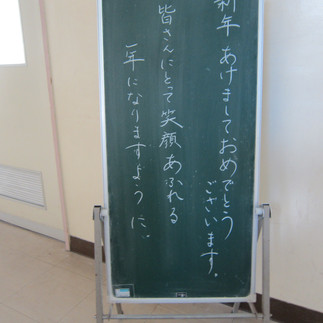 新年 あけましておめでとう
ございます。
皆さんにとって笑顔あふれる
一年になりますように。